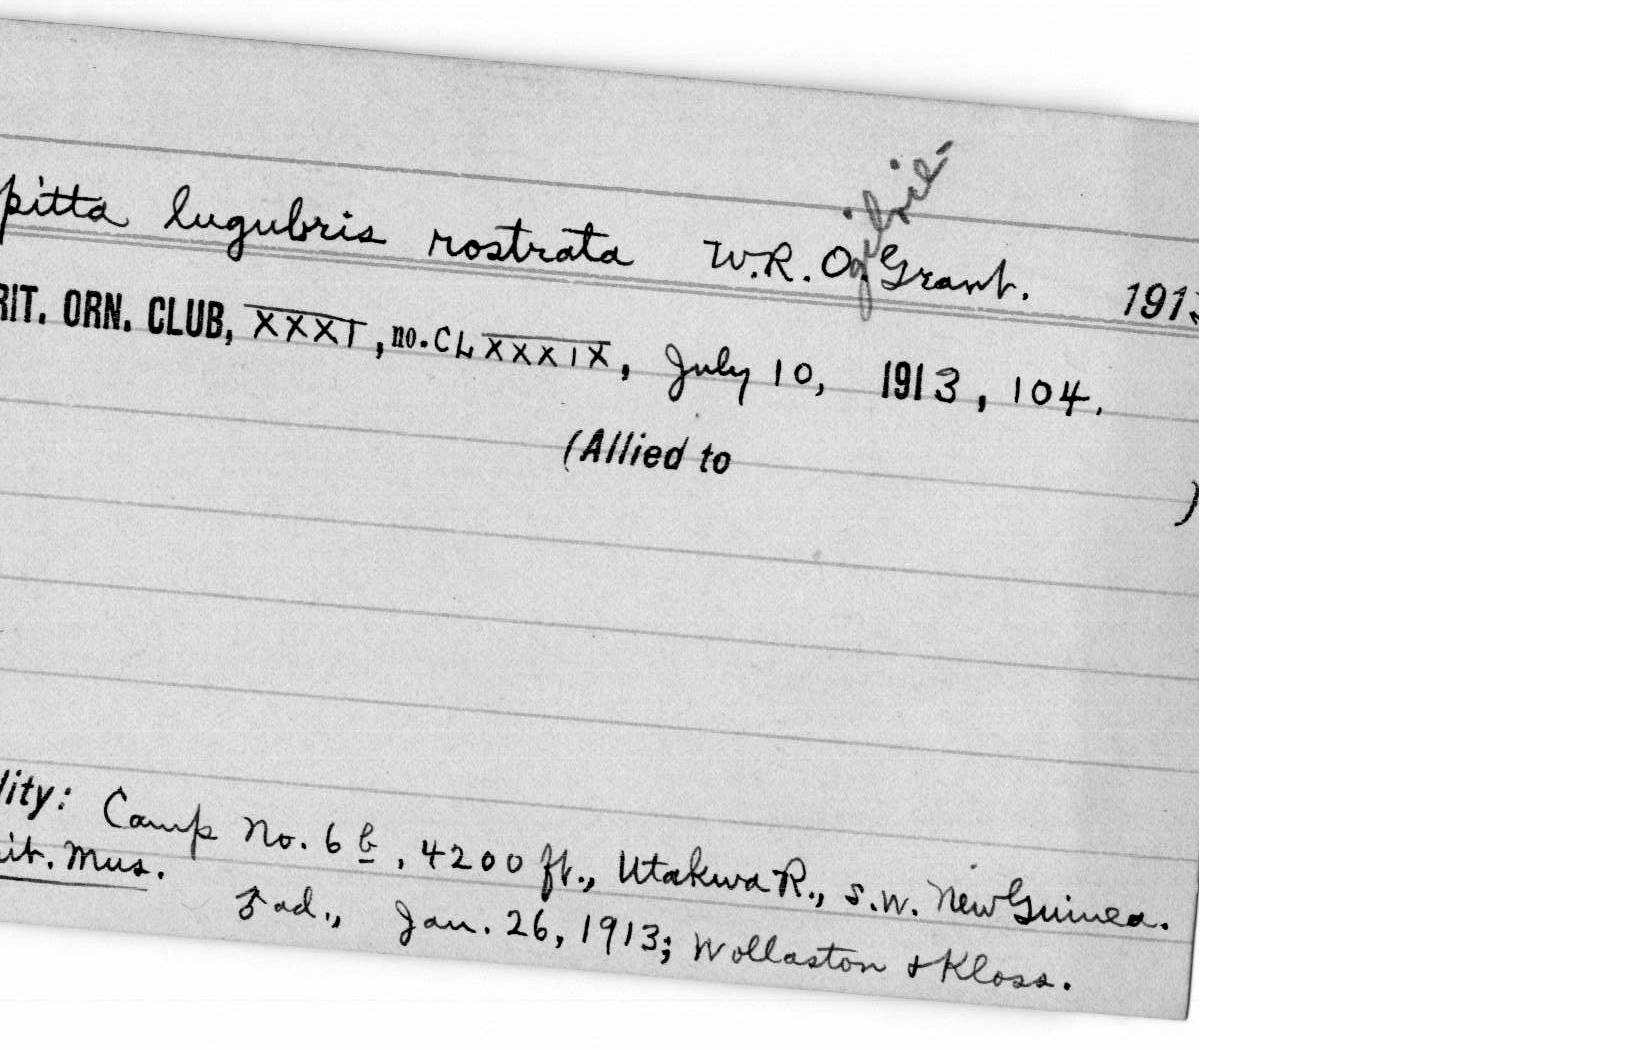 pitta lugubris rostrata W.R. Ogilvie-Grant. 1913
RIT. ORN. CLUB, XXXI, no. CLXXXIX, July 10, 1913, 104.
(Allied to )
lity: Camp No. 6b, 4200 ft., Utakwa R., S.W. New Guinea.
it. Mus. ♂ ad., Jan. 26, 1913; Wollaston & Kloss.